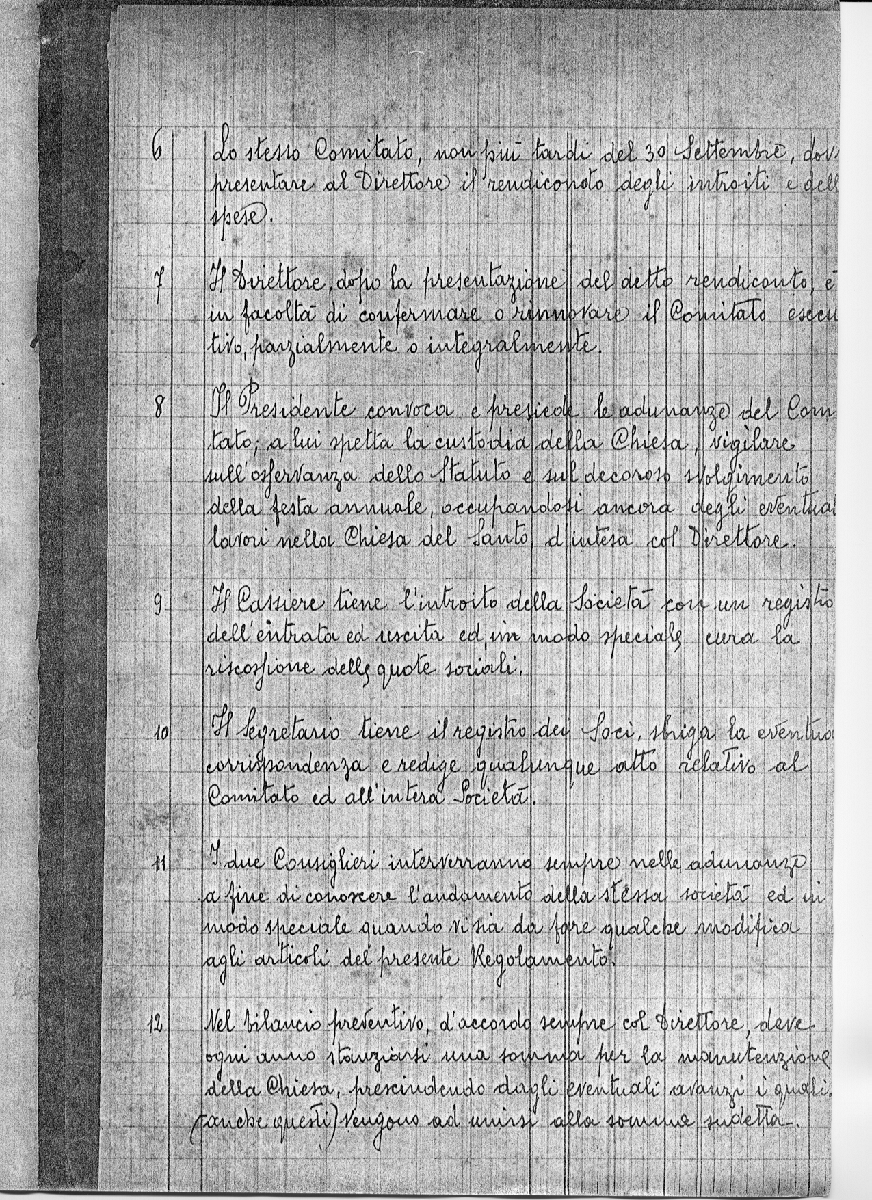 6 Lo stesso Comitato, non più tardi del 30 Settembre, dov
presentare al Direttore il rendiconoto degli introiti e dell
spese.
7 Il Direttore, dopo la presentazione del detto rendiconto, è
in facoltà di confermare o rinnovare il Comitato esecu
tivo, parzialmente o integralmente.
8 Il Presidente convoca e presiede le adunanze del Com
tato; a lui spetta la custodia della Chiesa, vigilare
sull'osservanza dello Statuto e sul decoroso svolgimento
della festa annuale, occupandosi ancora degli eventual
lavori nella Chiesa del Santo, d'intesa col Direttore.
9 Il Cassiere tiene l'introito della Società con un registro
dell'entrata ed uscita ed in modo speciale cura la
riscossione delle quote sociali.
10 Il Segretario tiene il registro dei Soci, sbriga la eventua
corrispondenza e redige qualunque atto relativo al
Comitato ed all'intera Società.
11 I due Consiglieri interverranno sempre nelle adunanze
a fine di conoscere l'andamento della stessa società ed in
modo speciale quando vi sia da fare qualche modifica
agli articoli del presente Regolamento.
12 Nel bilancio preventivo, d'accordo sempre col Direttore, deve
ogni anno stanziarsi una somma per la manutenzione
della Chiesa, prescindendo dagli eventuali avanzi i quali,
(anche questi) vengono ad unirsi alla somma sudetta.